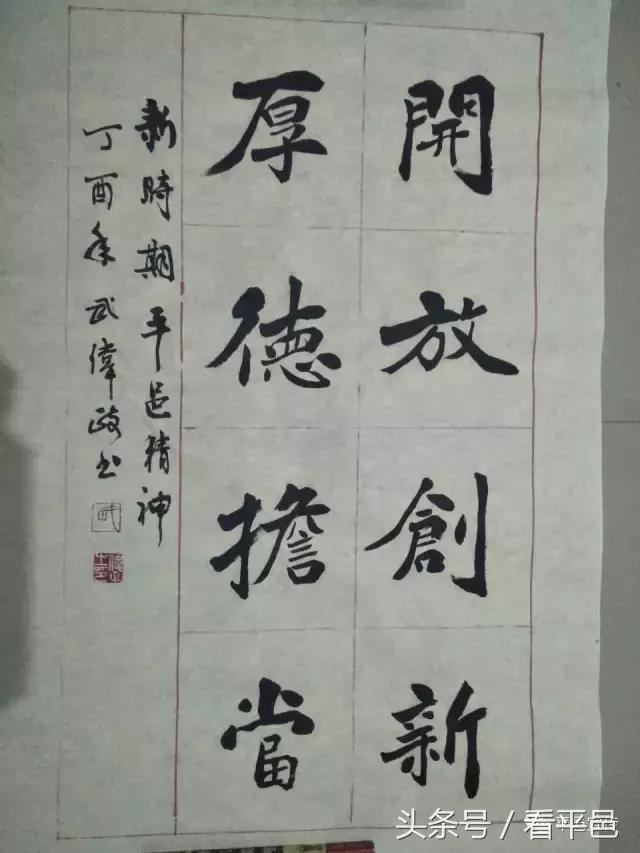 開放創新
厚德擔當
新時期平邑精神
丁酉年武偉政書
頭条号／看平邑